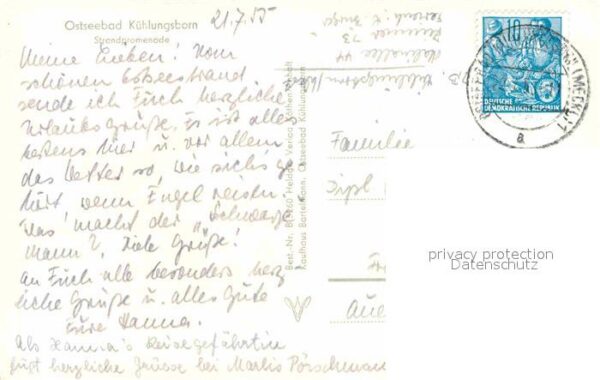 Ostseebad Kühlungsborn
Strandpromenade
21.7.55
Meine Lieben! Vom
schönen Ostseestrand
sende ich Euch herzliche
Urlaubsgrüße. Es ist alles
bestens hier u. vor allem
das Wetter so, wie sich's ge
hört wenn Engel reisen.
Was macht der „Schwarze
Mann"? Viele Grüße!
An Euch alle besonders herz
liche Grüße u. alles Gute
Eure Hanna.
Als Hanna's Reisegefährtin
fügt herzliche Grüsse bei Marlis Pörschmann
Best.-Nr. Heldge Verlag Köthen/Anhalt
Kaufhaus Bartelmann, Ostseebad Kühlungsborn
Zimmer 23
Familie
Dipl
Aue
10
DEUTSCHE
DEMOKRATISCHE REPUBLIK
(MECKL) 1
a
privacy protection
Datenschutz